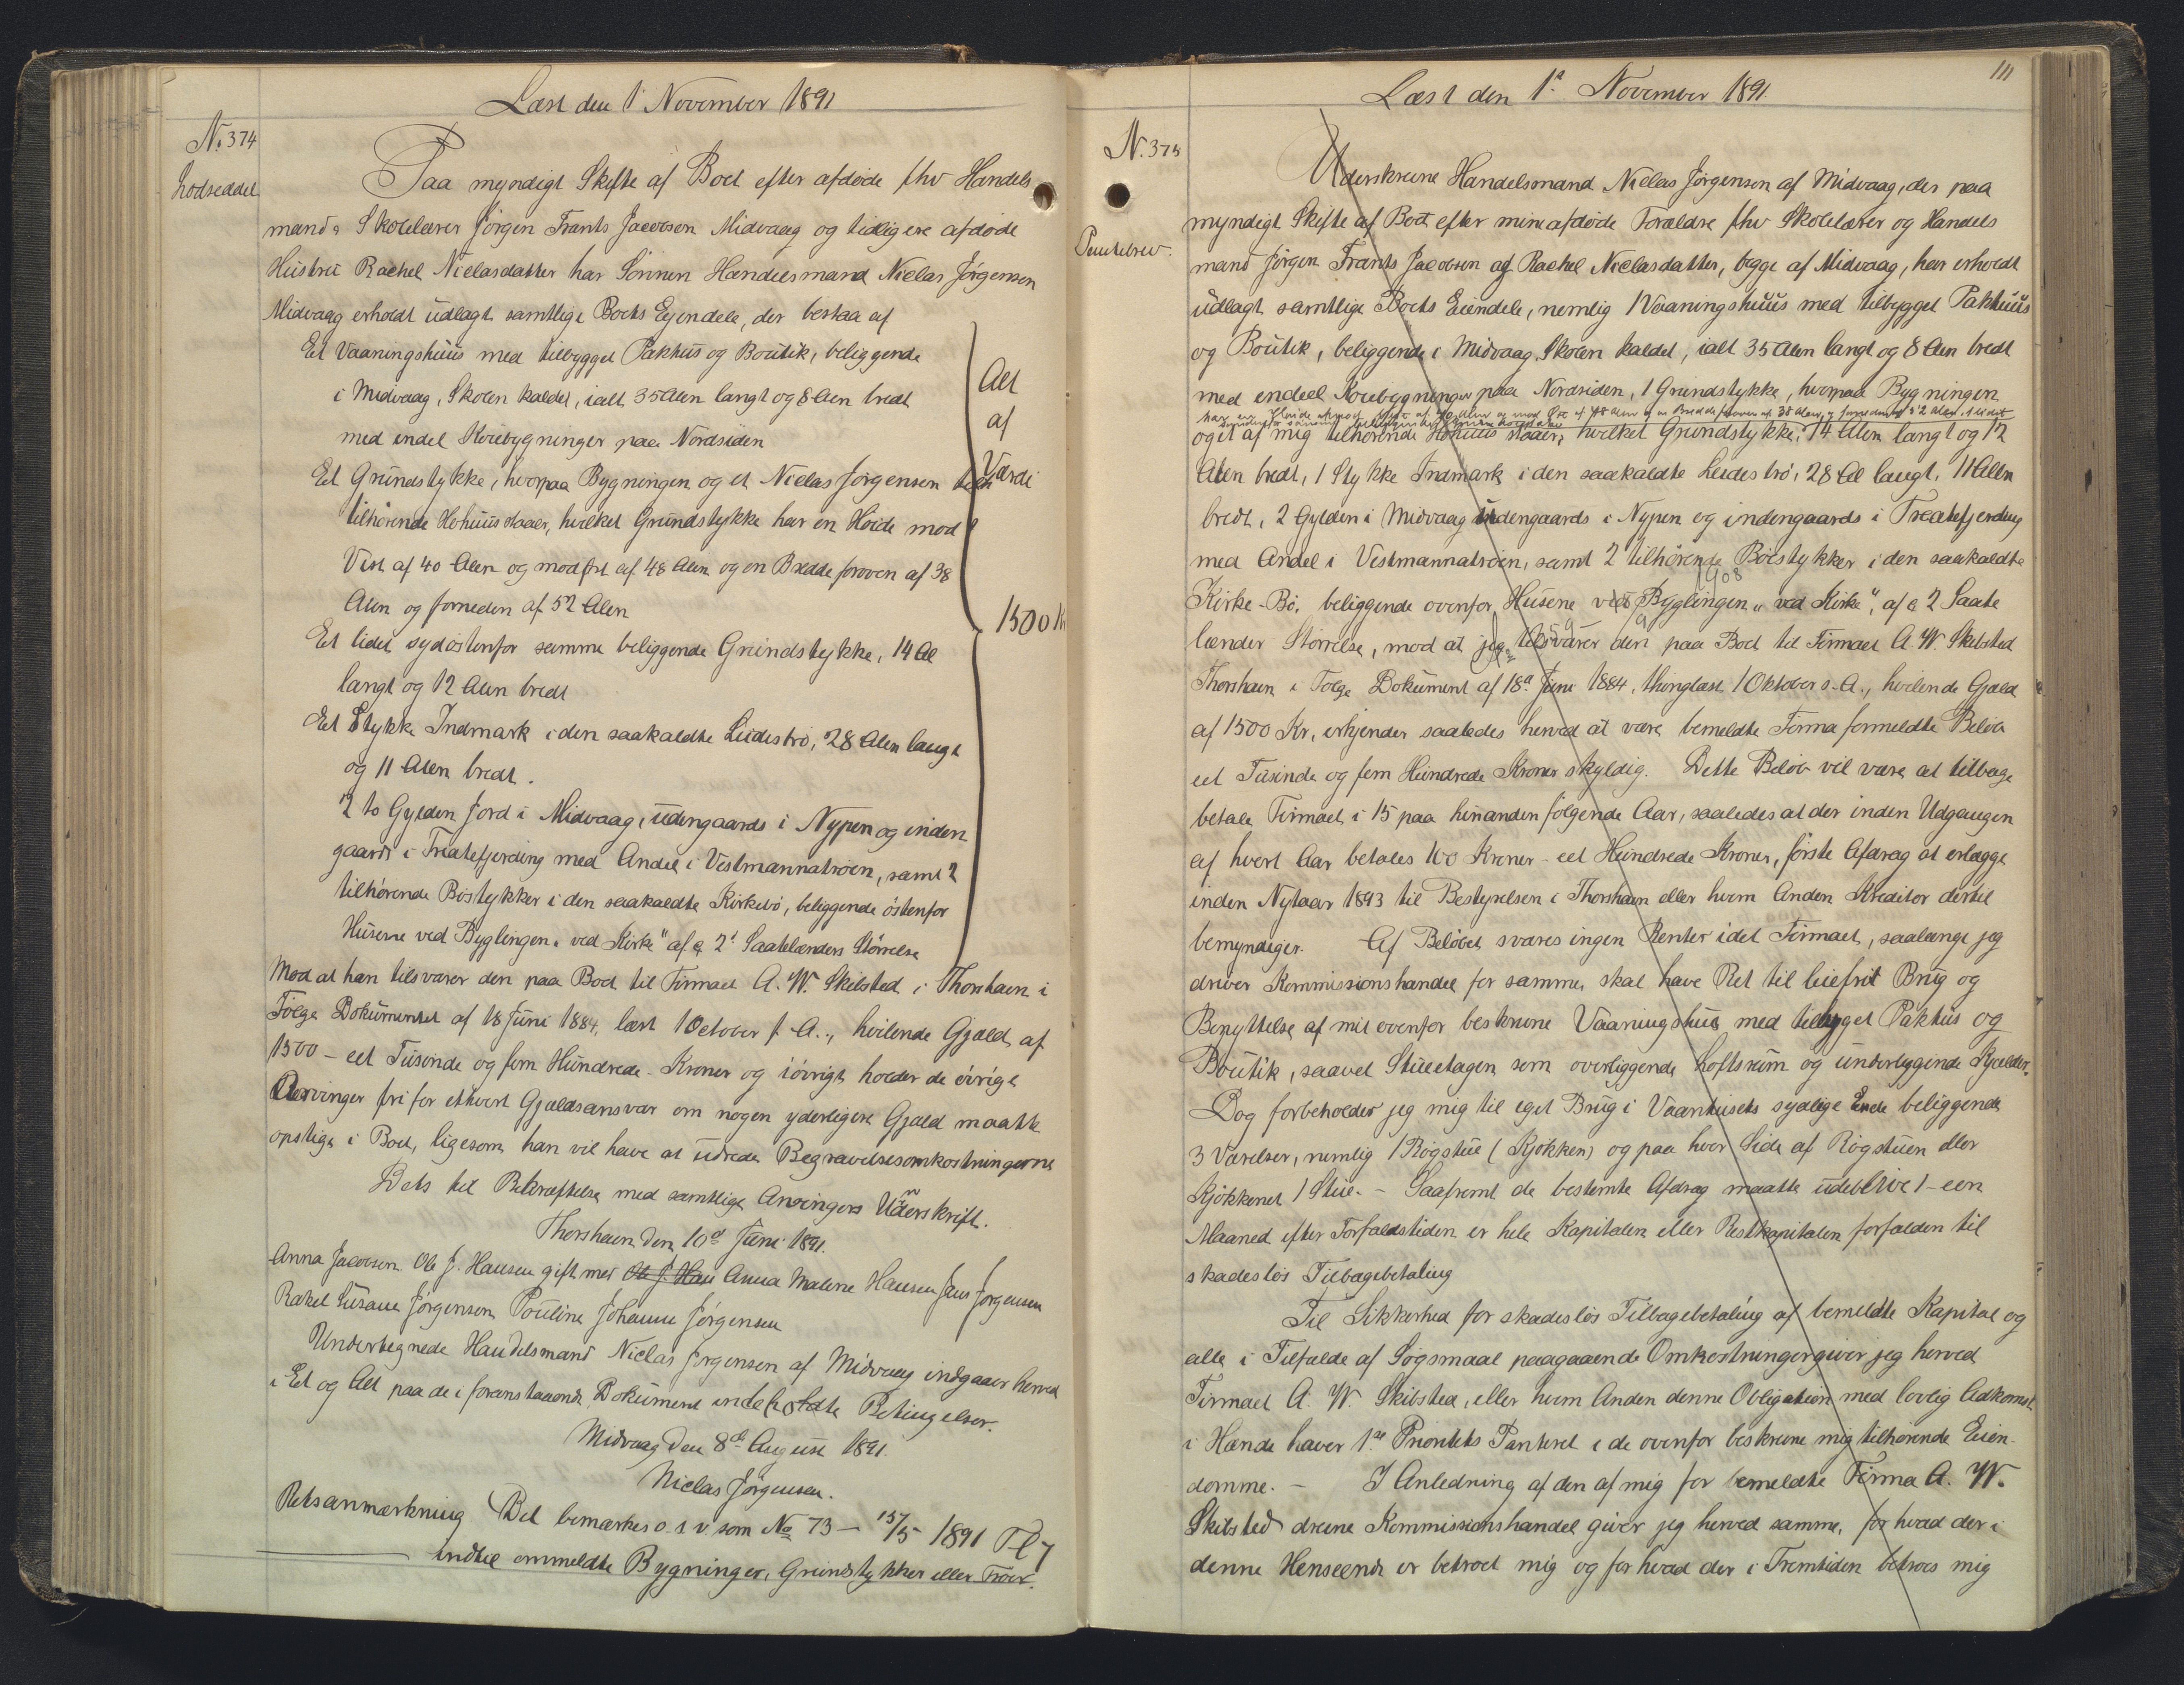 Læst den 1 November 1891
No 374
Lodseddel
Paa myndigt Skifte af Boet efter afdøde fhv Handels
mand & Skolelærer Jørgen Frants Jacobsen Midvaag og tidligere afdøde
Hustru Rachel Nielasdatter har Sønnen Handelsmand Nielas Jørgensen
Midvaag erholdt udlagt samtlige Boets Ejendele, der bestaa af
Et Vaaningshuus med tilbygget Pakhus og Boutik, beliggende
i Midvaag, Skolen kaldet, ialt 35 Alen langt og 8 Alen bredt
med endel Kovebygninger paa Nordsiden
Et Grundstykke, hvorpaa Bygningen og et Nielas Jørgensen
tilhørende Hohuus staaer, hvilket Grundstykke har en Høide mod
Vest af 40 Alen og mod Øst af 48 Alen og en Bredde foroven af 38
Alen og forneden af 52 Alen
Et lidet sydøstenfor samme beliggende Grundstykke, 14 Al
langt og 12 Alen bredt
Et Stykke Indmark i den saakaldte Leidestrø, 28 Alen langt
og 11 Alen bredt.
2 to Gylden Jord i Midvaag, udengaards i Nypen og inden
gaards i Treatefjerding med Andel i Vestmannatrøen, samt 2
tilhørende Bøstykker i den saakaldte Kirkebø, beliggende østenfor
Husene ved Byglingen "ved Kirke" af c 2 Saatelænders Størrelse
Alt
af
Værdi
1500 Kr
Mod at han tilsvarer den paa Boet til Firmaet A. W. Skibsted i Thorshavn i
Følge Dokumentet af 18 Juni 1884, læst 1 October s. A., hvilende Gjæld af
1500 - eet Tusinde og fem Hundrede - Kroner og iøvrigt holder de øvrige
Arvinger fri for ethvert Gjældsansvar om nogen yderligere Gjæld maatte
opstige i Boet, ligesom han vil have at udrede Begravelsesomkostningerne
Dets til Bekræftelse med samtlige Arvingers Underskrift.
Thorshavn den 10d Juni 1891.
Anna Jacobsen Ole J. Hansen gift med Ole J. Han Anna Malene Hansen Jens Jørgensen
Rakel Susanne Jørgensen Pouline Johanne Jørgensen
Undertegnede Handelsmand Niclas Jørgensen af Midvaag indgaaer herved
i Et og Alt paa de i foranstaaende Dokument indeholdte Betingelser.
Midvaag den 8de August 1891.
Niclas Jørgensen.
Retsanmærkning Det bemærkes o. s. v som No 73 - 15/5 1891
indtil ommeldte Bygninger, Grundstykker eller Trøer.
111
Læst den 1d November 1891.
N. 375
Pantebrev.
Underskrevne Handelsmand Nielas Jørgensen af Midvaag, der paa
myndigt Skifte af Boet efter mine afdøde Forældre fhv Skolelærer og Handels
mand Jørgen Frants Jacobsen og Rachel Nielasdatter, begge af Midvaag, har erholdt
udlagt samtlige Boets Eiendele, nemlig 1 Vaaningshuus med tilbygget Pakhuus
og Boutik, beliggende i Midvaag, Skolen kaldet, ialt 35 Alen langt og 8 Alen bredt
med endeel Kovebygninger paa Nordsiden, 1 Grundstykke, hvorpaa Bygningen
har en Høide mod Vest af 40 Alen og mod Øst af 48 Alen og en Bredde foroven af 38 Alen, og forneden af 52 Alen, 1 lidet
sydøstenfor samme beliggende Grundstykke
og et af mig tilhørende Hohuus staaer, hvilket Grundstykke, 14 Alen langt og 12
Alen bredt, 1 Stykke Indmark i den saakaldte Leidestrø, 28 Al langt, 11 Alen
bredt, 2 Gylden i Midvaag udengaards i Nypen og indengaards i Treatefjerding
med Andel i Vestmannatrøen, samt 2 tilhørende Bøestykker i den saakaldte
Kirke-Bø, beliggende ovenfor Husene ved Byglingen "ved Kirke", af c 2 Saate
lænder Størrelse, mod at jeg tilsvarer den paa Boet til Firmaet A. W. Skibsted
Thorshavn i Følge Dokument af 18d Juni 1884, thinglæst 1 Oktober s. A., hvilende Gjæld
af 1500 Kr, erkjender saaledes herved at være bemeldte Firma formeldte Beløb
eet Tusinde og fem Hundrede Kroner skyldig. Dette Beløb vil være at tilbage
betale Firmaet i 15 paa hinanden følgende Aar, saaledes at der inden Udgangen
af hvert Aar betales 100 Kroner - eet Hundrede Kroner, første Afdrag at erlægge
inden Nytaar 1893 til Bestyrelsen i Thorshavn eller hvem Anden Kreditor dertil
bemyndiger. Af Beløbet svares ingen Renter idet Firmaet, saalænge jeg
driver Kommissionshandel for samme, skal have Ret til leiefrit Brug og
Benyttelse af mit ovenfor beskrevne Vaaningshus med tilbygget Pakhus og
Boutik, saavel Stueetagen som overliggende Loftsrum og underliggende Kjælder.
Dog forbeholder jeg mig til eget Brug i Vaanhusets sydlige Ende beliggende
3 Værelser, nemlig 1 Røgstue (Kjøkken) og paa hver Side af Røgstuen eller
Kjøkkenet 1 Stue. - Saafremt de bestemte Afdrag maatte udeblive 1 - een
Maaned efter Forfaldstiden er hele Kapitalen eller Restkapitalen forfalden til
skadesløs Tilbagebetaling
Til Sikkerhed for skadesløs Tilbagebetaling af bemeldte Kapital og
alle i Tilfælde af Søgsmaal paagaaende Omkostninger giver jeg herved
Firmaet A. W. Skibsted, eller hvem Anden denne Obligation med lovlig Adkomst
i Hænde haver 1ste Prioritets Panteret i de ovenfor beskrevne mig tilhørende Eien-
domme. - I Anledning af den af mig for bemeldte Firma A. W.
Skibsted drevne Kommissionshandel giver jeg herved samme, for hvad der i
denne Henseende er betroet mig og for hvad der i Fremtiden betroes mig